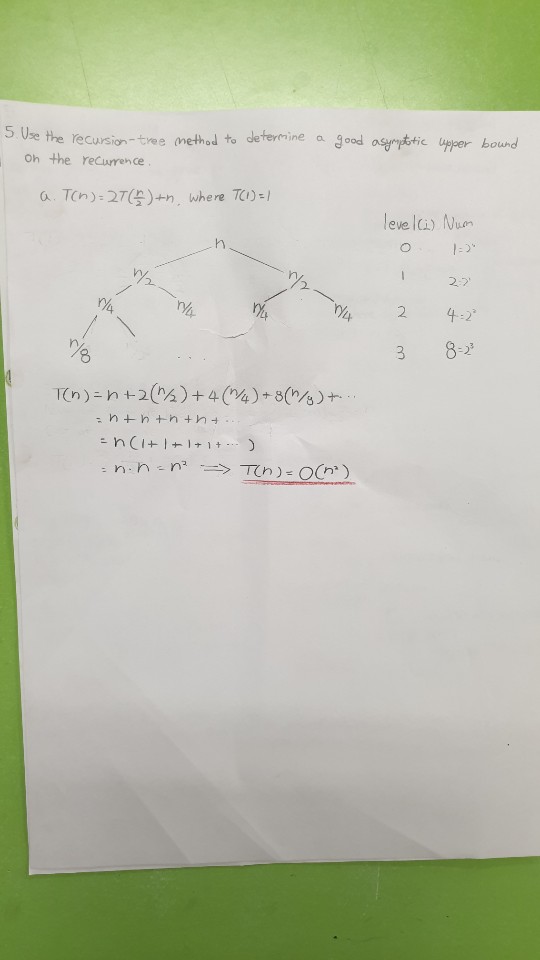 5. Use the recursion-tree method to determine a good asymptotic upper bound
on the recurrence.
a. T(n)=2T(n/2)+n, where T(1)=1
level(i) Num
n
0 1=2⁰
n/2 n/2
1 2=2¹
n/4 n/4 n/4 n/4
2 4=2²
n/8 ...
3 8=2³
T(n)=n+2(n/2)+4(n/4)+8(n/8)+...
=n+n+n+n+...
=n(1+1+1+1+...)
=n·n=n² ⇒ T(n)=O(n²)